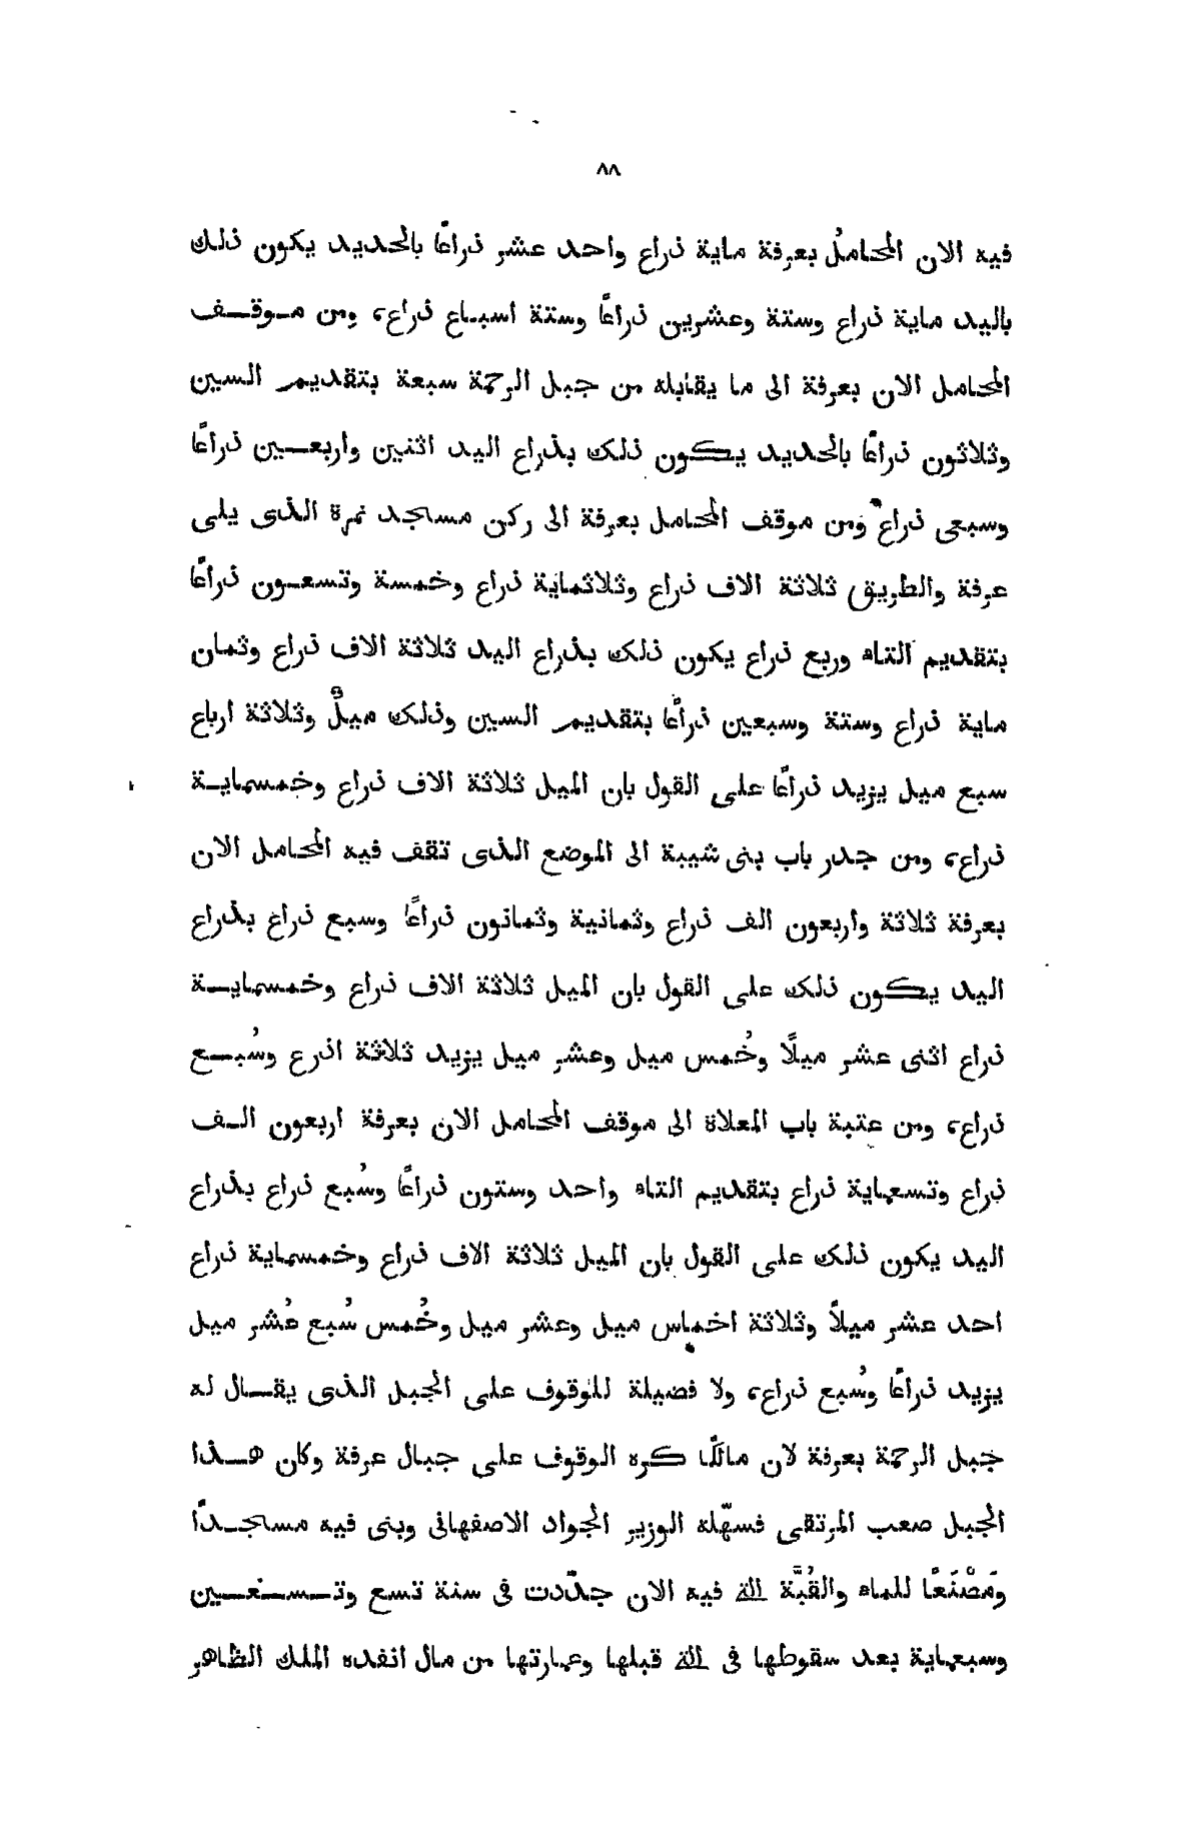 ٨٨
فيه الان المحاملُ بعرفة ماية ذراع واحد عشر ذراعًا بالحديد يكون ذلك
باليد ماية ذراع وستة وعشرين ذراعًا وستة اسباع ذراع، ومن موقف
المحامل الان بعرفة الى ما يقابله من جبل الرحمة سبعة بتقديم السين
وثلاثون ذراعًا بالحديد يكون ذلك بذراع اليد اثنين واربعين ذراعًا
وسبعى ذراع ومن موقف المحامل بعرفة الى ركن مسجد نمرة الذى يلى
عرفة والطريق ثلاثة الاف ذراع وثلاثماية ذراع وخمسة وتسعون ذراعًا
بتقديم التاء وربع ذراع يكون ذلك بذراع اليد ثلاثة الاف ذراع وثمان
ماية ذراع وستة وسبعين ذراعًا بتقديم السين وذلك ميلٌ وثلاثة ارباع
سبع ميل يزيد ذراعًا على القول بان الميل ثلاثة الاف ذراع وخمسماية
ذراع، ومن جدر باب بنى شيبة الى الموضع الذى تقف فيه المحامل الان
بعرفة ثلاثة واربعون الف ذراع وثمانية وثمانون ذراعًا وسبع ذراع بذراع
اليد يكون ذلك على القول بان الميل ثلاثة الاف ذراع وخمسماية
ذراع اثنى عشر ميلًا وخُمس ميل وعشر ميل يزيد ثلاثة اذرع وسُبع
ذراع، ومن عتبة باب المعلاة الى موقف المحامل الان بعرفة اربعون الف
ذراع وتسعماية ذراع بتقديم التاء واحد وستون ذراعًا وسُبع ذراع بذراع
اليد يكون ذلك على القول بان الميل ثلاثة الاف ذراع وخمسماية ذراع
احد عشر ميلًا وثلاثة اخماس ميل وعشر ميل وخُمس سُبع عُشر ميل
يزيد ذراعًا وسُبع ذراع، ولا فضيلة للوقوف على الجبل الذى يقال له
جبل الرحمة بعرفة لان مالكًا كره الوقوف على جبال عرفة وكان هذا
الجبل صعب المرتقى فسهّله الوزير الجواد الاصفهانى وبنى فيه مسجدًا
ومَصْنَعًا للماء والقُبَّة التى فيه الان جدّدت فى سنة تسع وتسعين
وسبعماية بعد سقوطها فى التى قبلها وعمارتها من مال انفذه الملك الظاهر